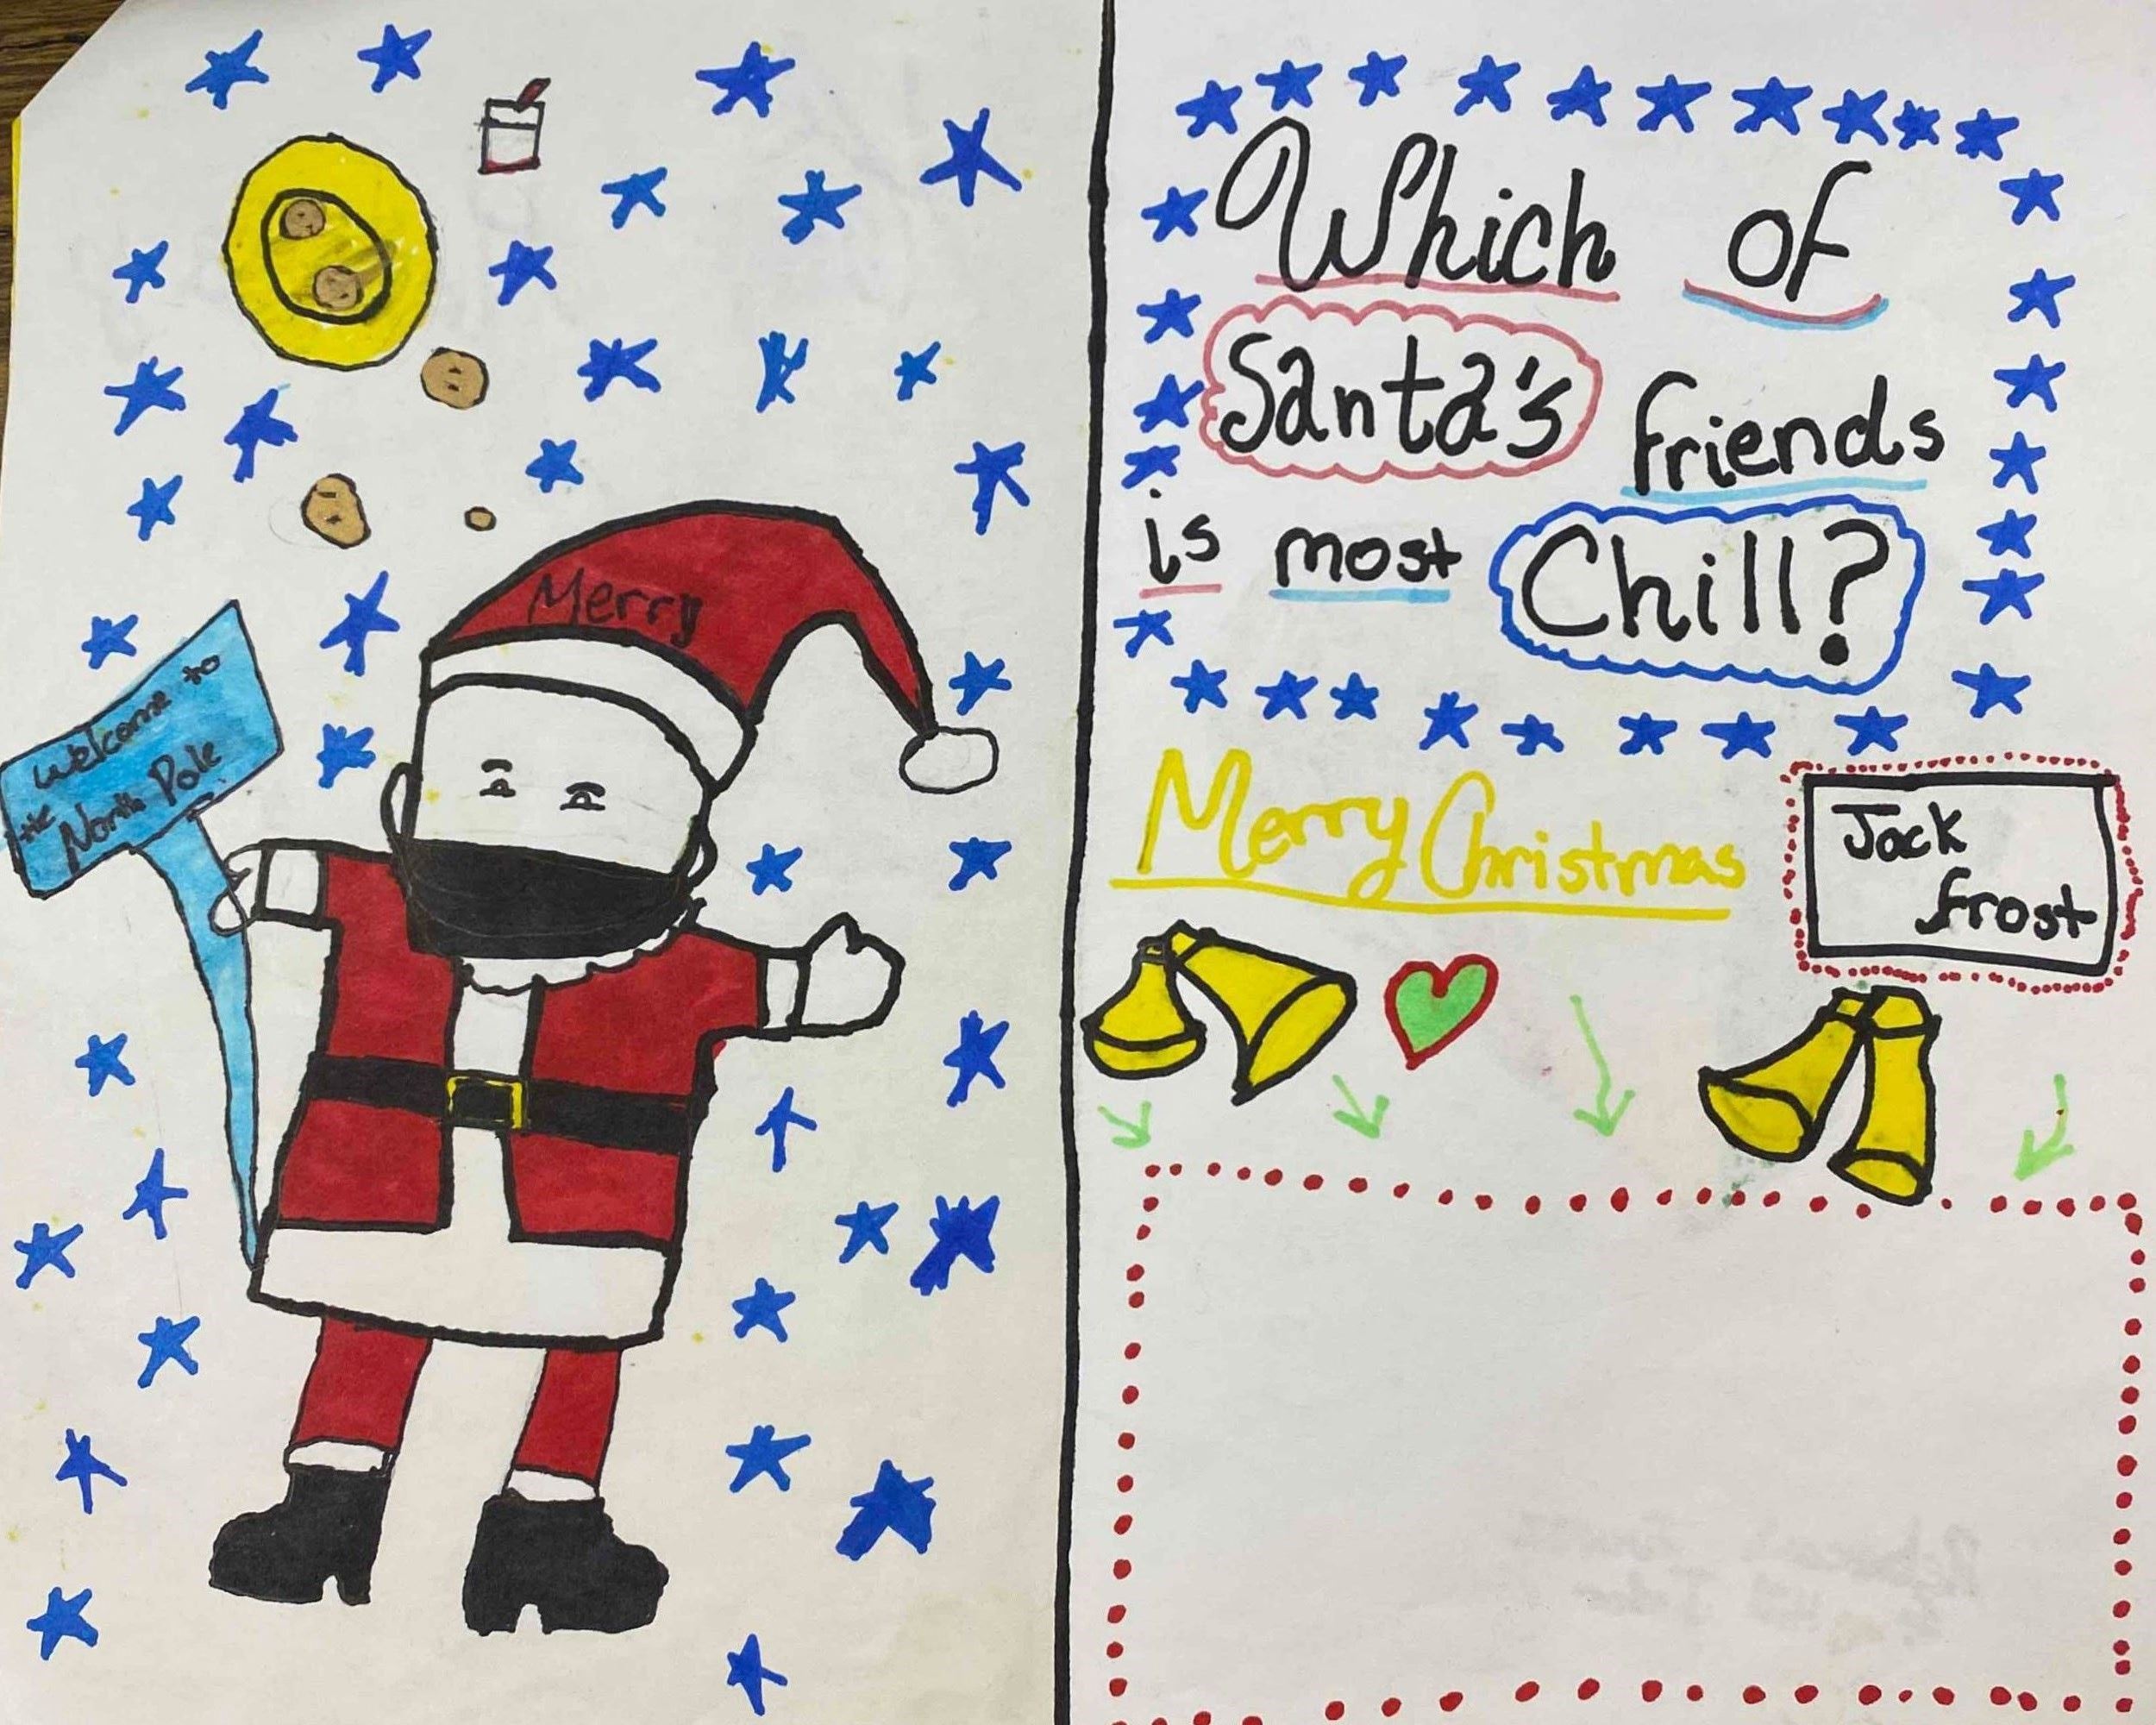 Merry
Welcome to
the North Pole
Which of
Santa's friends
is most Chill?
Merry Christmas
Jack
frost